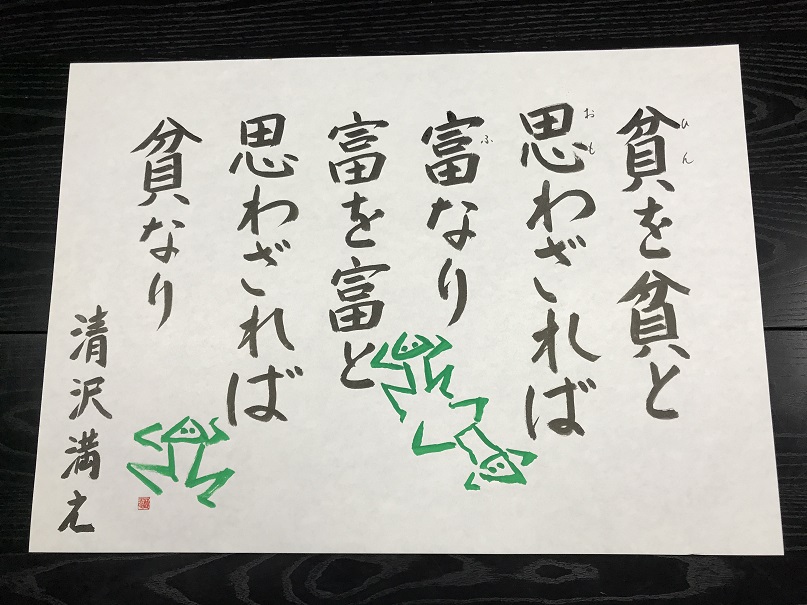 貧を貧と
思わざれば
富なり
富を富と
思わざれば
貧なり
清沢満之
ひん
おも
ふ